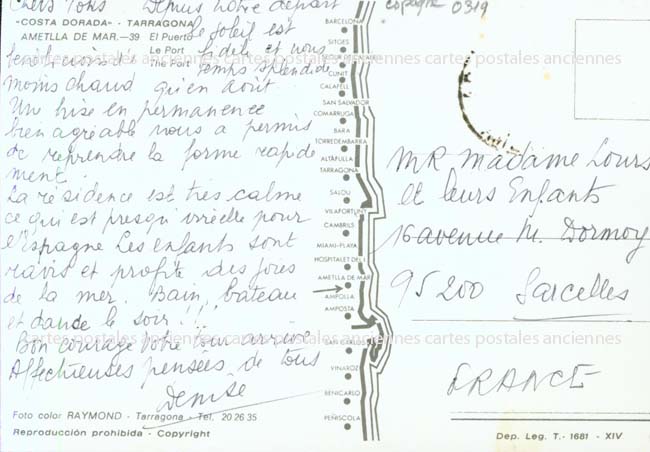 Chers Tous Depuis notre départ
"COSTA DORADA" - TARRAGONA
AMETLLA DE MAR.—39 El Puerto
Le Port
The Port
le soleil est
fidele et nous
temps splendide
moins chaud qu'en août
Une brise en permanence
bien agréable nous a permis
de reprendre la forme rapide
ment.
La résidence est très calme
ce qui est presqu'irréelle pour
l'Espagne Les enfants sont
ravis et profite des joies
de la mer. Bain, bateau
et danse le soir !!!
Bon courage votre tour arrive
Affectueuses pensées de tous
Denise
Foto color RAYMOND - Tarragona - Tel. 20 26 35
Reproducción prohibida - Copyright
BARCELONA
SITGES
CUNIT
CALAFELL
SAN SALVADOR
COMARRUGA
BARA
TORREDEMBARRA
ALTAFULLA
TARRAGONA
SALOU
VILAFORTUNY
CAMBRILS
MIAMI-PLAYA
HOSPITALET DEL I.
AMETLLA DE MAR
AMPOLLA
AMPOSTA
SAN CARLOS
VINAROZ
BENICARLO
PEÑISCOLA
espagne 0319
MR Madame Lours
et leurs Enfants
16 avenue M. Dormoy
95200 Sarcelles
FRANCE
Dep. Leg. T.- 1681 - XIV
cartes postales anciennes cartes postales anciennes
cartes postales anciennes cartes postales anciennes